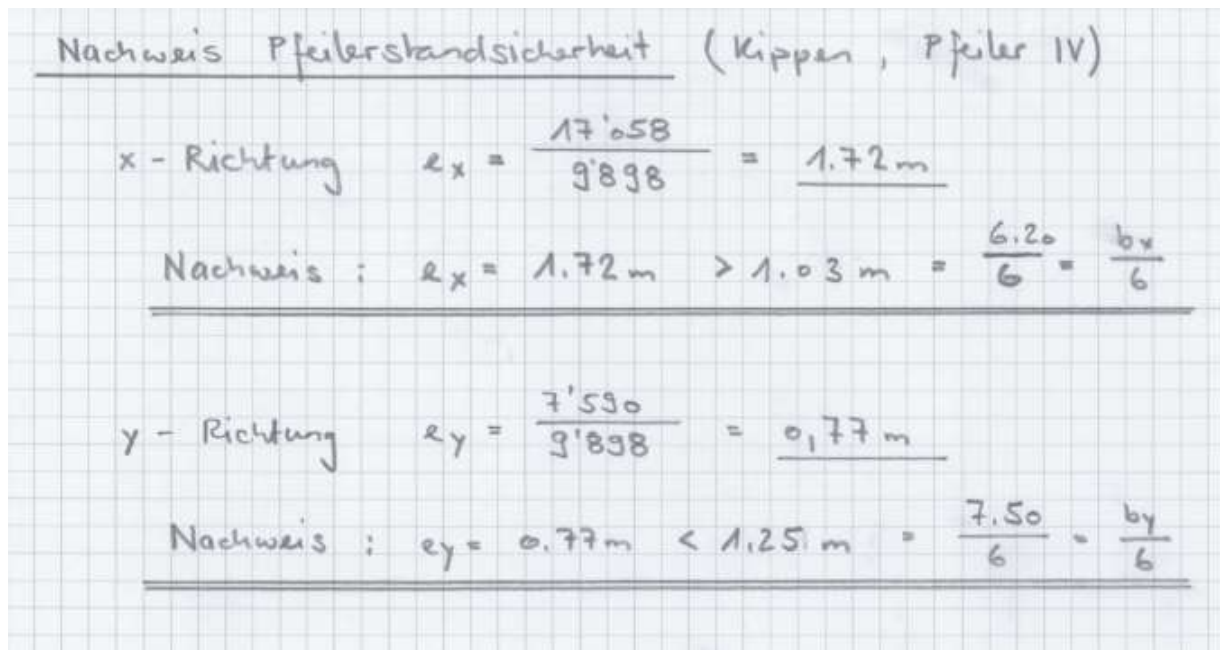 Nachweis Pfeilerstandsicherheit (Kippen, Pfeiler IV)
x - Richtung ex = 17'058 / 9'898 = 1.72 m
Nachweis : ex = 1.72 m > 1.03 m = 6.20 / 6 = bx / 6
y - Richtung ey = 7'590 / 9'898 = 0,77 m
Nachweis : ey = 0.77 m < 1.25 m = 7.50 / 6 = by / 6